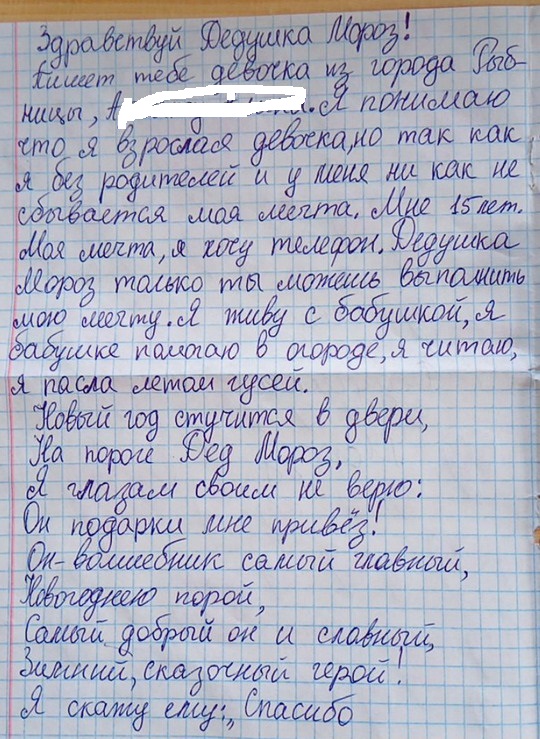 Здравствуй Дедушка Мороз!
Пишет тебе девочка из города Рыб-
ницы, Я понимаю
что я взрослая девочка, но так как
я без родителей и у меня ни как не
сбывается моя мечта. Мне 15 лет.
Моя мечта, я хочу телефон. Дедушка
Мороз только ты можешь выполнить
мою мечту. Я живу с бабушкой, я
бабушке помогаю в огороде, я читаю,
я пасла летом гусей.
Новый год стучится в двери,
На пороге Дед Мороз,
Я глазам своим не верю:
Он подарки мне привёз!
Он-волшебник самый главный,
Новогоднею порой,
Самый добрый он и славный,
Зимний, сказочный герой!
Я скажу ему: „Спасибо